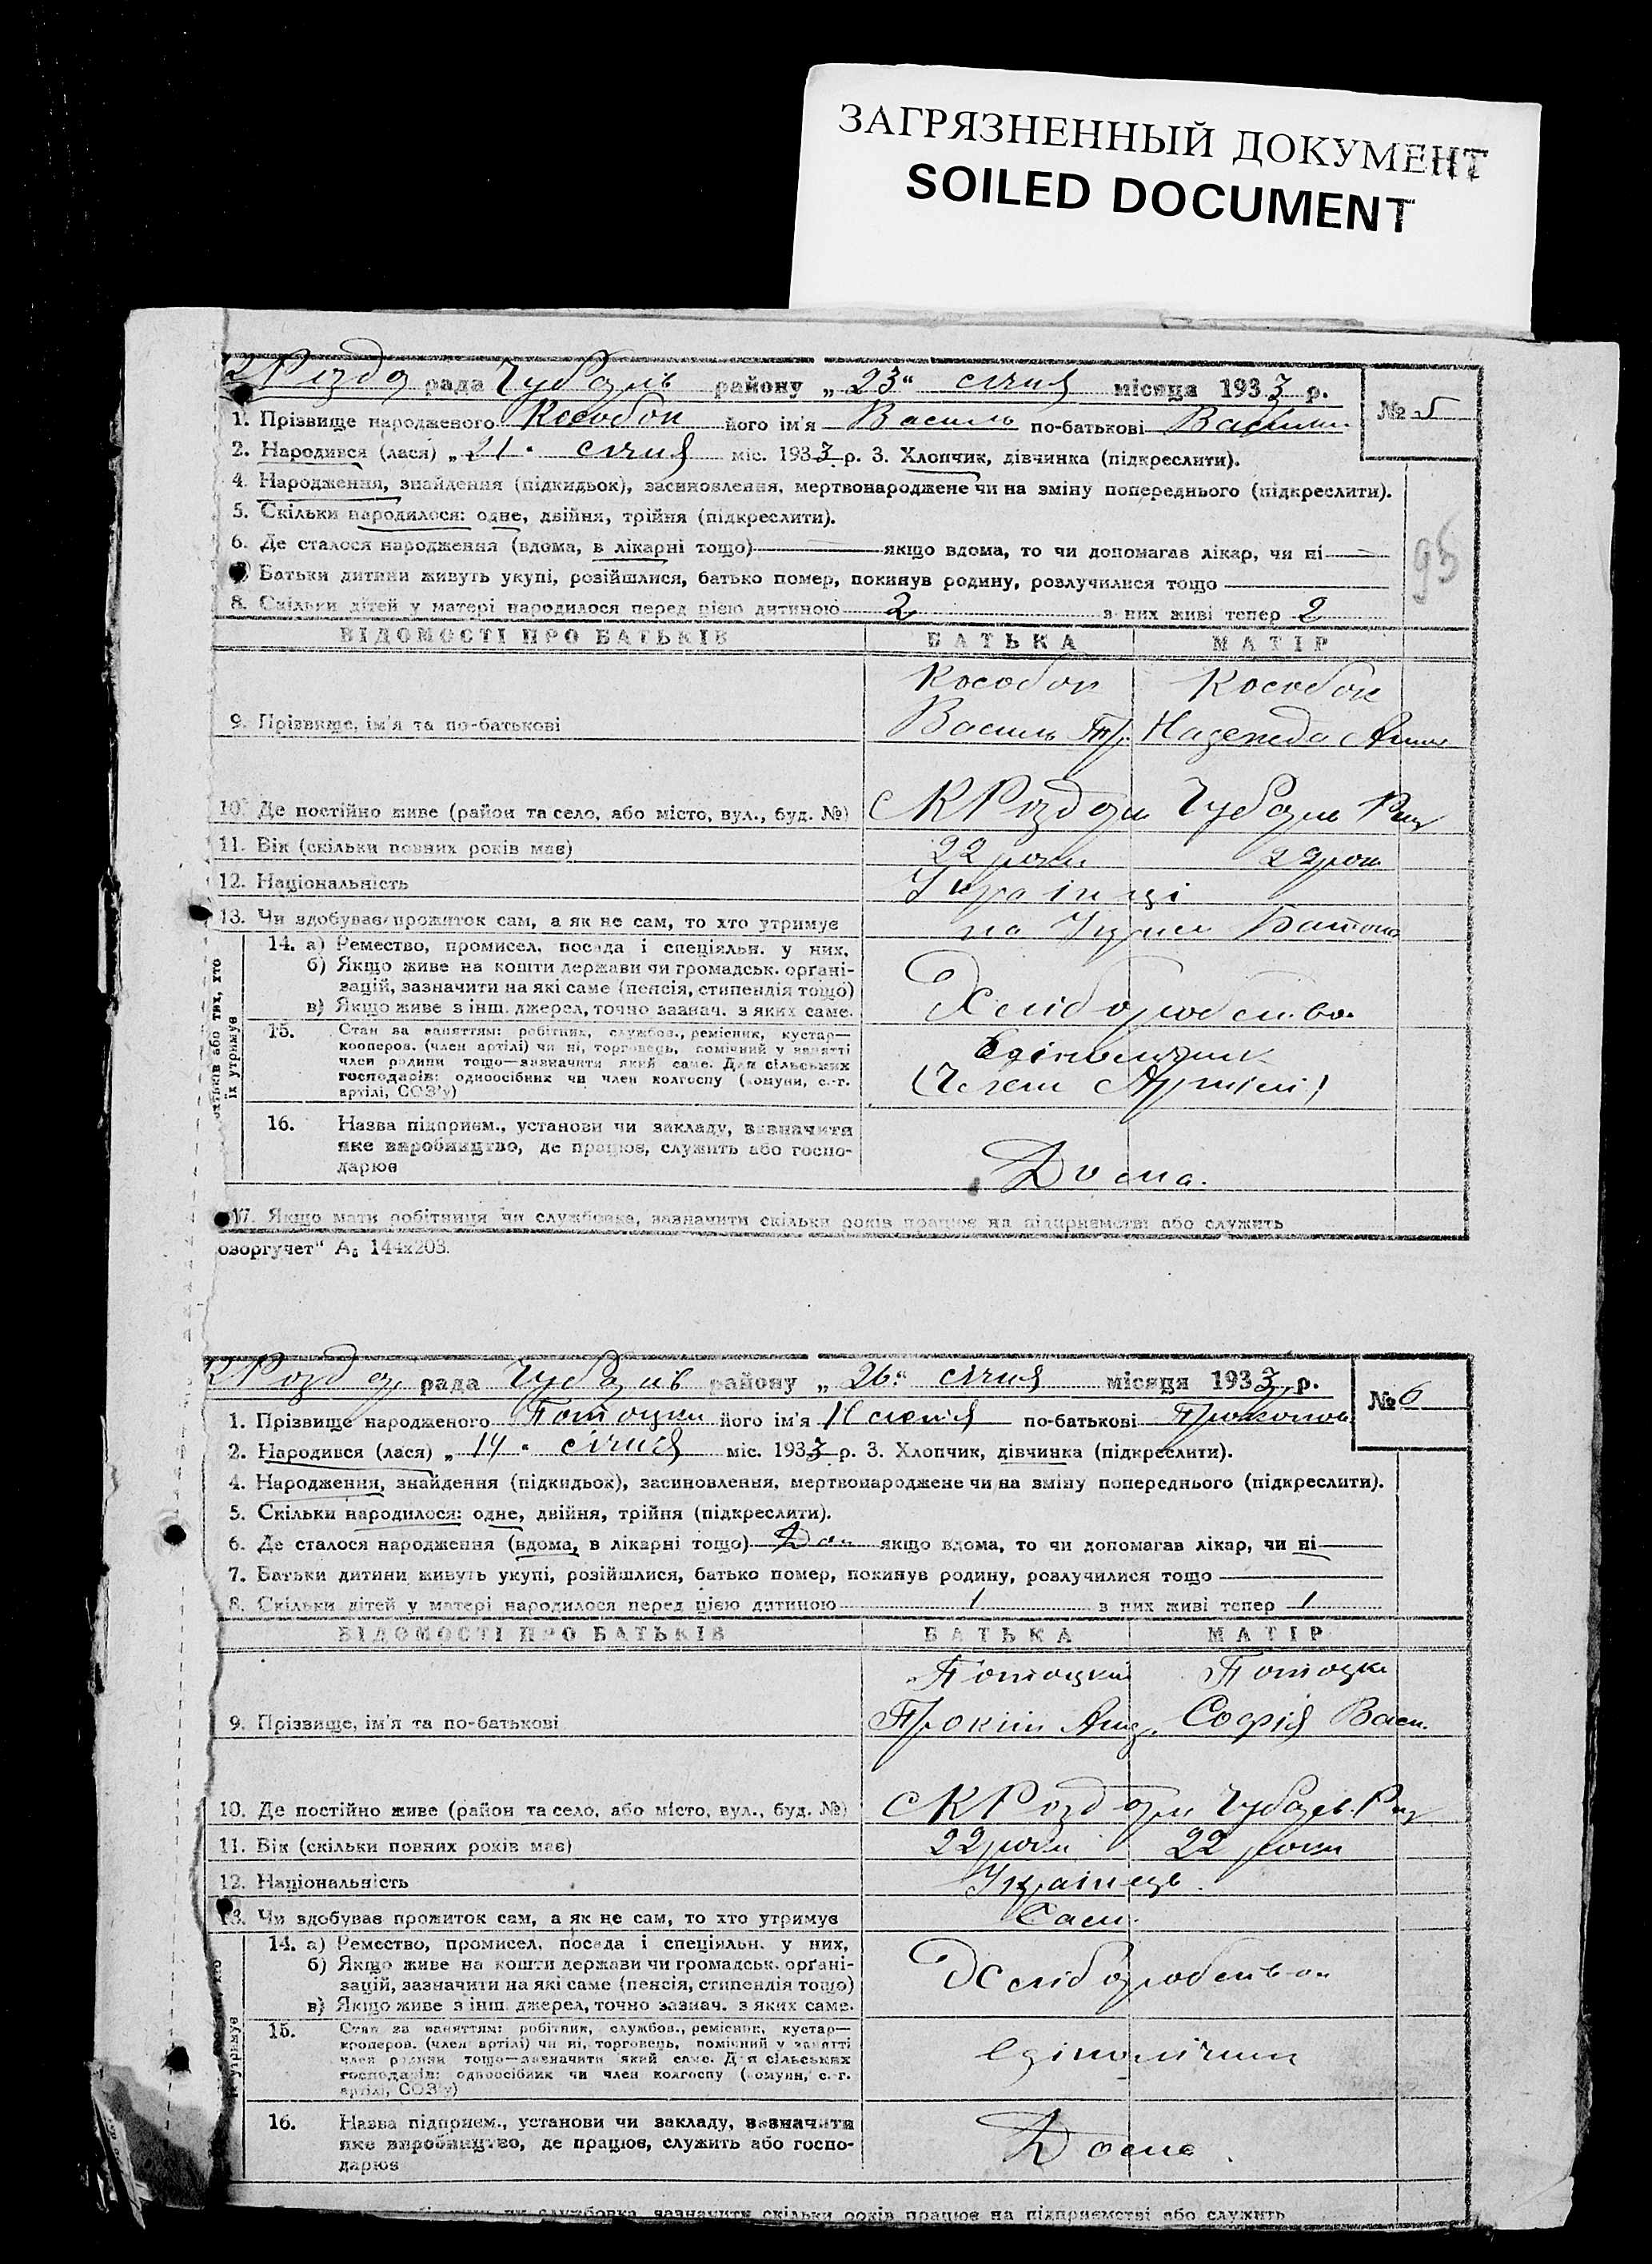 ЗАГРЯЗНЕННЫЙ ДОКУМЕНТ
SOILED DOCUMENT
рада району „ 23 “ січня місяця 1933 р.
№ 5
1. Прізвище народженого Кособок його ім'я Василь по-батькові
2. Народився (лася) „ 21 “ січня міс. 1933 р. 3. Хлопчик, дівчинка (підкреслити).
4. Народження, знайдення (підкидьок), засиновлення, мертвонароджене чи на зміну попереднього (підкреслити).
5. Скільки народилося: одне, двійня, трійня (підкреслити).
95
6. Де сталося народження (вдома, в лікарні тощо) якщо вдома, то чи допомагав лікар, чи ні
7. Батьки дитини живуть укупі, розійшлися, батько помер, покинув родину, розлучилися тощо
8. Скільки дітей у матері народилося перед цією дитиною 2 з них живі тепер 2
ВІДОМОСТІ ПРО БАТЬКІВ БАТЬКА МАТІР
Кособок Кособок
9. Прізвище, ім'я та по-батькові Василь Надежда
10. Де постійно живе (район та село, або місто, вул., буд. №)
11. Вік (скільки повних років має) 22 роки
12. Національність Українці
13. Чи здобуває прожиток сам, а як не сам, то хто утримує
14. а) Ремество, промисел, посада і спеціяльн. у них,
б) Якщо живе на кошти держави чи громадськ. орґані-
зацій, зазначити на які саме (пенсія, стипендія тощо)
в) Якщо живе з інш. джерел, точно зазнач. з яких саме.
Хліборобство
15. Стан за заняттям: робітник, службов., ремісник, кустар—
кооперов. (член артілі) чи ні, торговець, помічний у занятті
член родини тощо—зазначити який саме. Для сільських
господарів: одноосібник чи член колгоспу (комуни, с.-г.
артілі, СОЗ'у)
16. Назва підприєм., установи чи закладу, зазначити
яке виробництво, де працює, служить або госпо-
дарює
Дома.
17. Якщо мати робітниця чи службовка, зазначити скільки років працює на підприємстві або служить
озоргучет“ А₅ 144х203.
рада району „ 26 “ січня місяця 1933 р.
№ 6
1. Прізвище народженого його ім'я по-батькові
2. Народився (лася) „ 14 “ січня міс. 1933 р. 3. Хлопчик, дівчинка (підкреслити).
4. Народження, знайдення (підкидьок), засиновлення, мертвонароджене чи на зміну попереднього (підкреслити).
5. Скільки народилося: одне, двійня, трійня (підкреслити).
6. Де сталося народження (вдома, в лікарні тощо) якщо вдома, то чи допомагав лікар, чи ні
7. Батьки дитини живуть укупі, розійшлися, батько помер, покинув родину, розлучилися тощо
8. Скільки дітей у матері народилося перед цією дитиною 1 з них живі тепер 1
ВІДОМОСТІ ПРО БАТЬКІВ БАТЬКА МАТІР
Потоцкий
9. Прізвище, ім'я та по-батькові Софія Васи.
10. Де постійно живе (район та село, або місто, вул., буд. №)
11. Вік (скільки повних років має) 22 роки 22 роки
12. Національність Українець
13. Чи здобуває прожиток сам, а як не сам, то хто утримує Сам.
14. а) Ремество, промисел, посада і спеціяльн. у них,
б) Якщо живе на кошти держави чи громадськ. орґані-
зацій, зазначити на які саме (пенсія, стипендія тощо)
в) Якщо живе з інш. джерел, точно зазнач. з яких саме.
Хліборобство
15. Стан за заняттям: робітник, службов., ремісник, кустар—
кооперов. (член артілі) чи ні, торговець, помічний у занятті
член родини тощо—зазначити який саме. Для сільських
господарів: одноосібник чи член колгоспу (комуни, с.-г.
артілі, СОЗ'у)
16. Назва підприєм., установи чи закладу, зазначити
яке виробництво, де працює, служить або госпо-
дарює
Дома
службовка, зазначити скільки років працює на підприємстві або служить